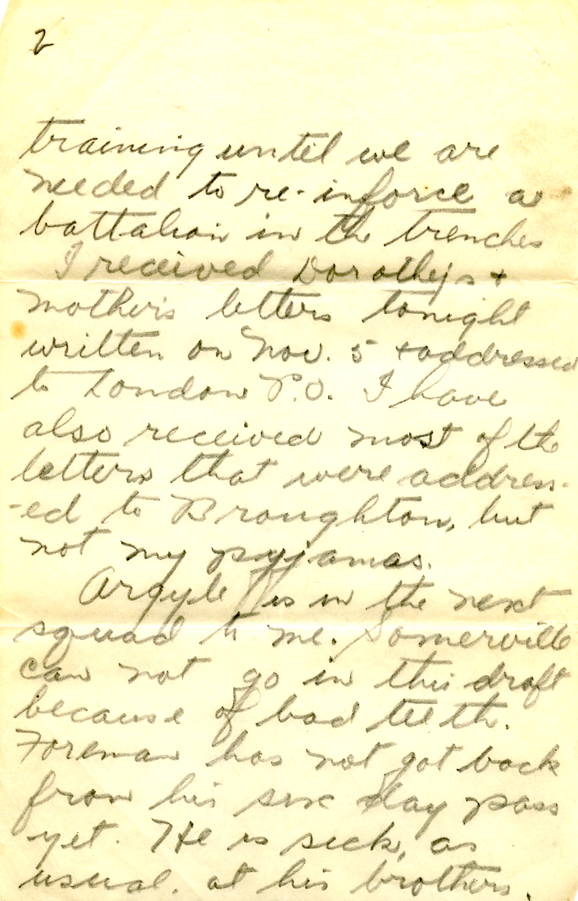 2
training until we are
needed to re-inforce a
battalion in the trenches
I received Dorothy's +
mother's letters tonight
written on Nov. 5 + addressed
to London P.O. I have
also received most of the
letters that were address-
-ed to Broughton, but
not my pyjamas.
Argyle is in the next
squad to me. Somerville
can not go in this draft
because of bad teeth.
Foreman has not got back
from his six day pass
yet. He is sick, as
usual, at his brothers.